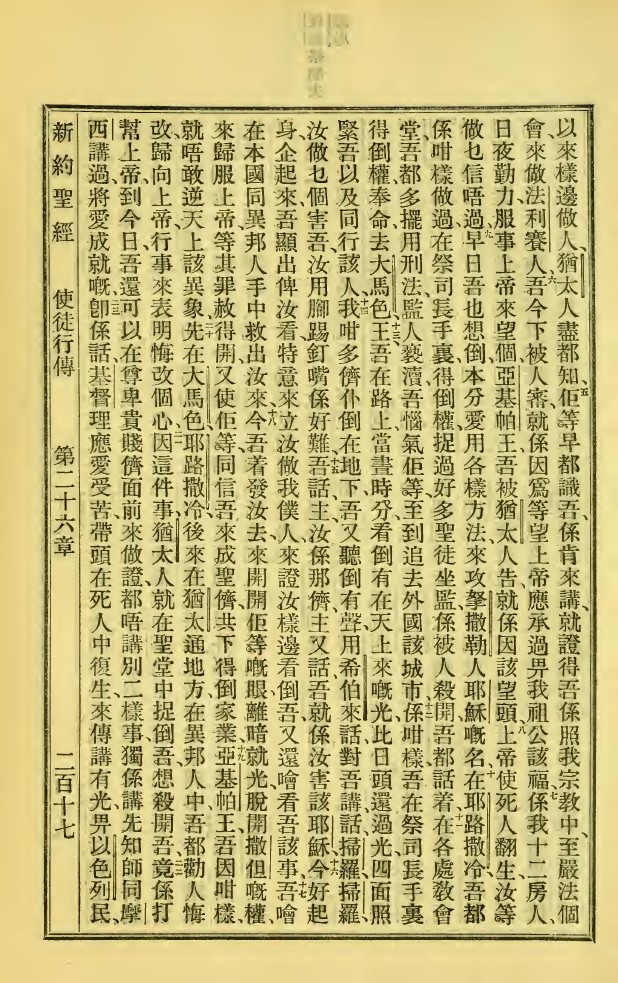 以來樣邊做人、猶太人盡都知、五佢等早都識吾、係肯來講、就證得吾係照我宗教中、至嚴法個
會、來做法利賽人、六吾今下被人審、就係因爲等望上帝應承過畀我祖公該福、七係我十二房人、
日夜勤力服事上帝、來望個、亞基帕王、吾被猶太人告、就係因該望頭、八上帝使死人翻生、汝等
做乜信唔過、九早日吾也想倒本分愛用各樣方法、來攻拏撒勒人耶穌嘅名、十在耶路撒冷、吾都
係咁樣做過、在祭司長手裏、得倒權、捉過好多聖徒坐監、係被人殺開、吾都話着、十一在各處敎會
堂、吾都多擺用刑法、監人褻瀆、吾惱氣佢等、至到追去外國該城市、十二係咁樣吾在祭司長手裏
得倒權、奉命去大馬色、十三王、吾在路上、當晝時分、看倒有在天上來嘅光、比日頭還過光、四面照
緊吾、以及同行該人、十四我咁多儕仆倒在地下、吾又聽倒有聲、用希伯來話對吾講話、掃羅、掃羅、
汝做乜個害吾、汝用腳踢釘嘴係好難、十五吾話、主、汝係那儕、主又話、吾就係汝害該耶穌、十六今好起
身、企起來、吾顯出俾汝看、特意來立汝做我僕人、來證汝樣邊看倒吾、又還噲看吾該事、十七吾噲
在本國同異邦人手中救出汝來、今吾着發汝去、十八來開開佢等嘅眼、離暗就光、脫開撒但嘅權、
來歸服上帝、等其罪赦得開、又使佢等同信吾來成聖儕、共下得倒家業、十九亞基帕王、吾因咁樣、
就唔敢逆天上該異象、二十先在大馬色、耶路撒冷、後來在猶太通地方、在異邦人中、吾都勸人悔
改、歸向上帝、行事來表明悔改個心、二一因這件事、猶太人就在聖堂中捉倒吾、想殺開吾、二二竟係打
幫上帝、到今日吾還可以在尊卑貴賤儕面前來做證、都唔講別二樣事、獨係講先知師同摩
西講過將愛成就嘅、二三卽係話基督理應愛受苦、帶頭在死人中復生、來傳講有光畀以色列民、
新約聖經 使徒行傳 第二十六章 二百十七